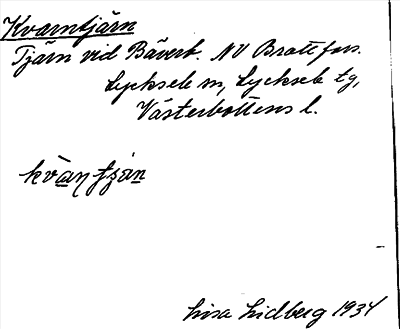 Kvarntjärn
Tjärn vid Bäverb. NV Brattfors.
Lycksele sn, Lycksele tg,
Västerbottens l.
kvàaꞃ tjän
Lisa Lidberg 1934